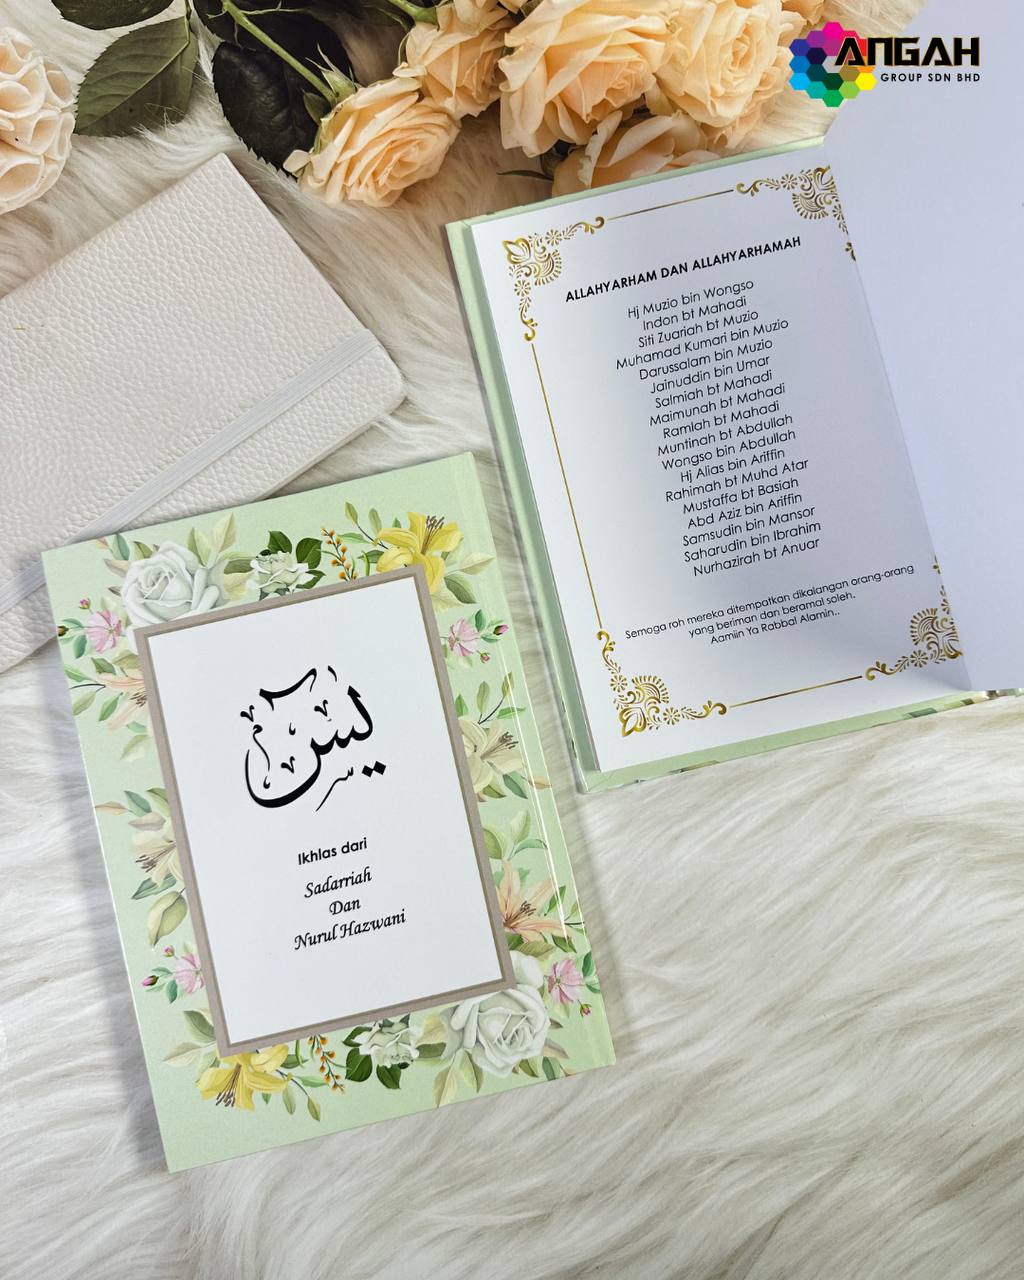 ANGAH
GROUP SDN BHD
ALLAHYARHAM DAN ALLAHYARHAMAH
Hj Muzio bin Wongso
Indon bt Mahadi
Siti Zuariah bt Muzio
Muhamad Kumari bin Muzio
Darussalam bin Muzio
Jainuddin bin Umar
Salmiah bt Mahadi
Maimunah bt Mahadi
Ramlah bt Mahadi
Muntinah bt Abdullah
Wongso bin Abdullah
Hj Alias bin Ariffin
Rahimah bt Muhd Atar
Mustaffa bt Basiah
Abd Aziz bin Ariffin
Samsudin bin Mansor
Saharudin bin Ibrahim
Nurhazirah bt Anuar
Semoga roh mereka ditempatkan dikalangan orang-orang
yang beriman dan beramal soleh.
Aamiin Ya Rabbal Alamin..
يس
Ikhlas dari
Sadarriah
Dan
Nurul Hazwani